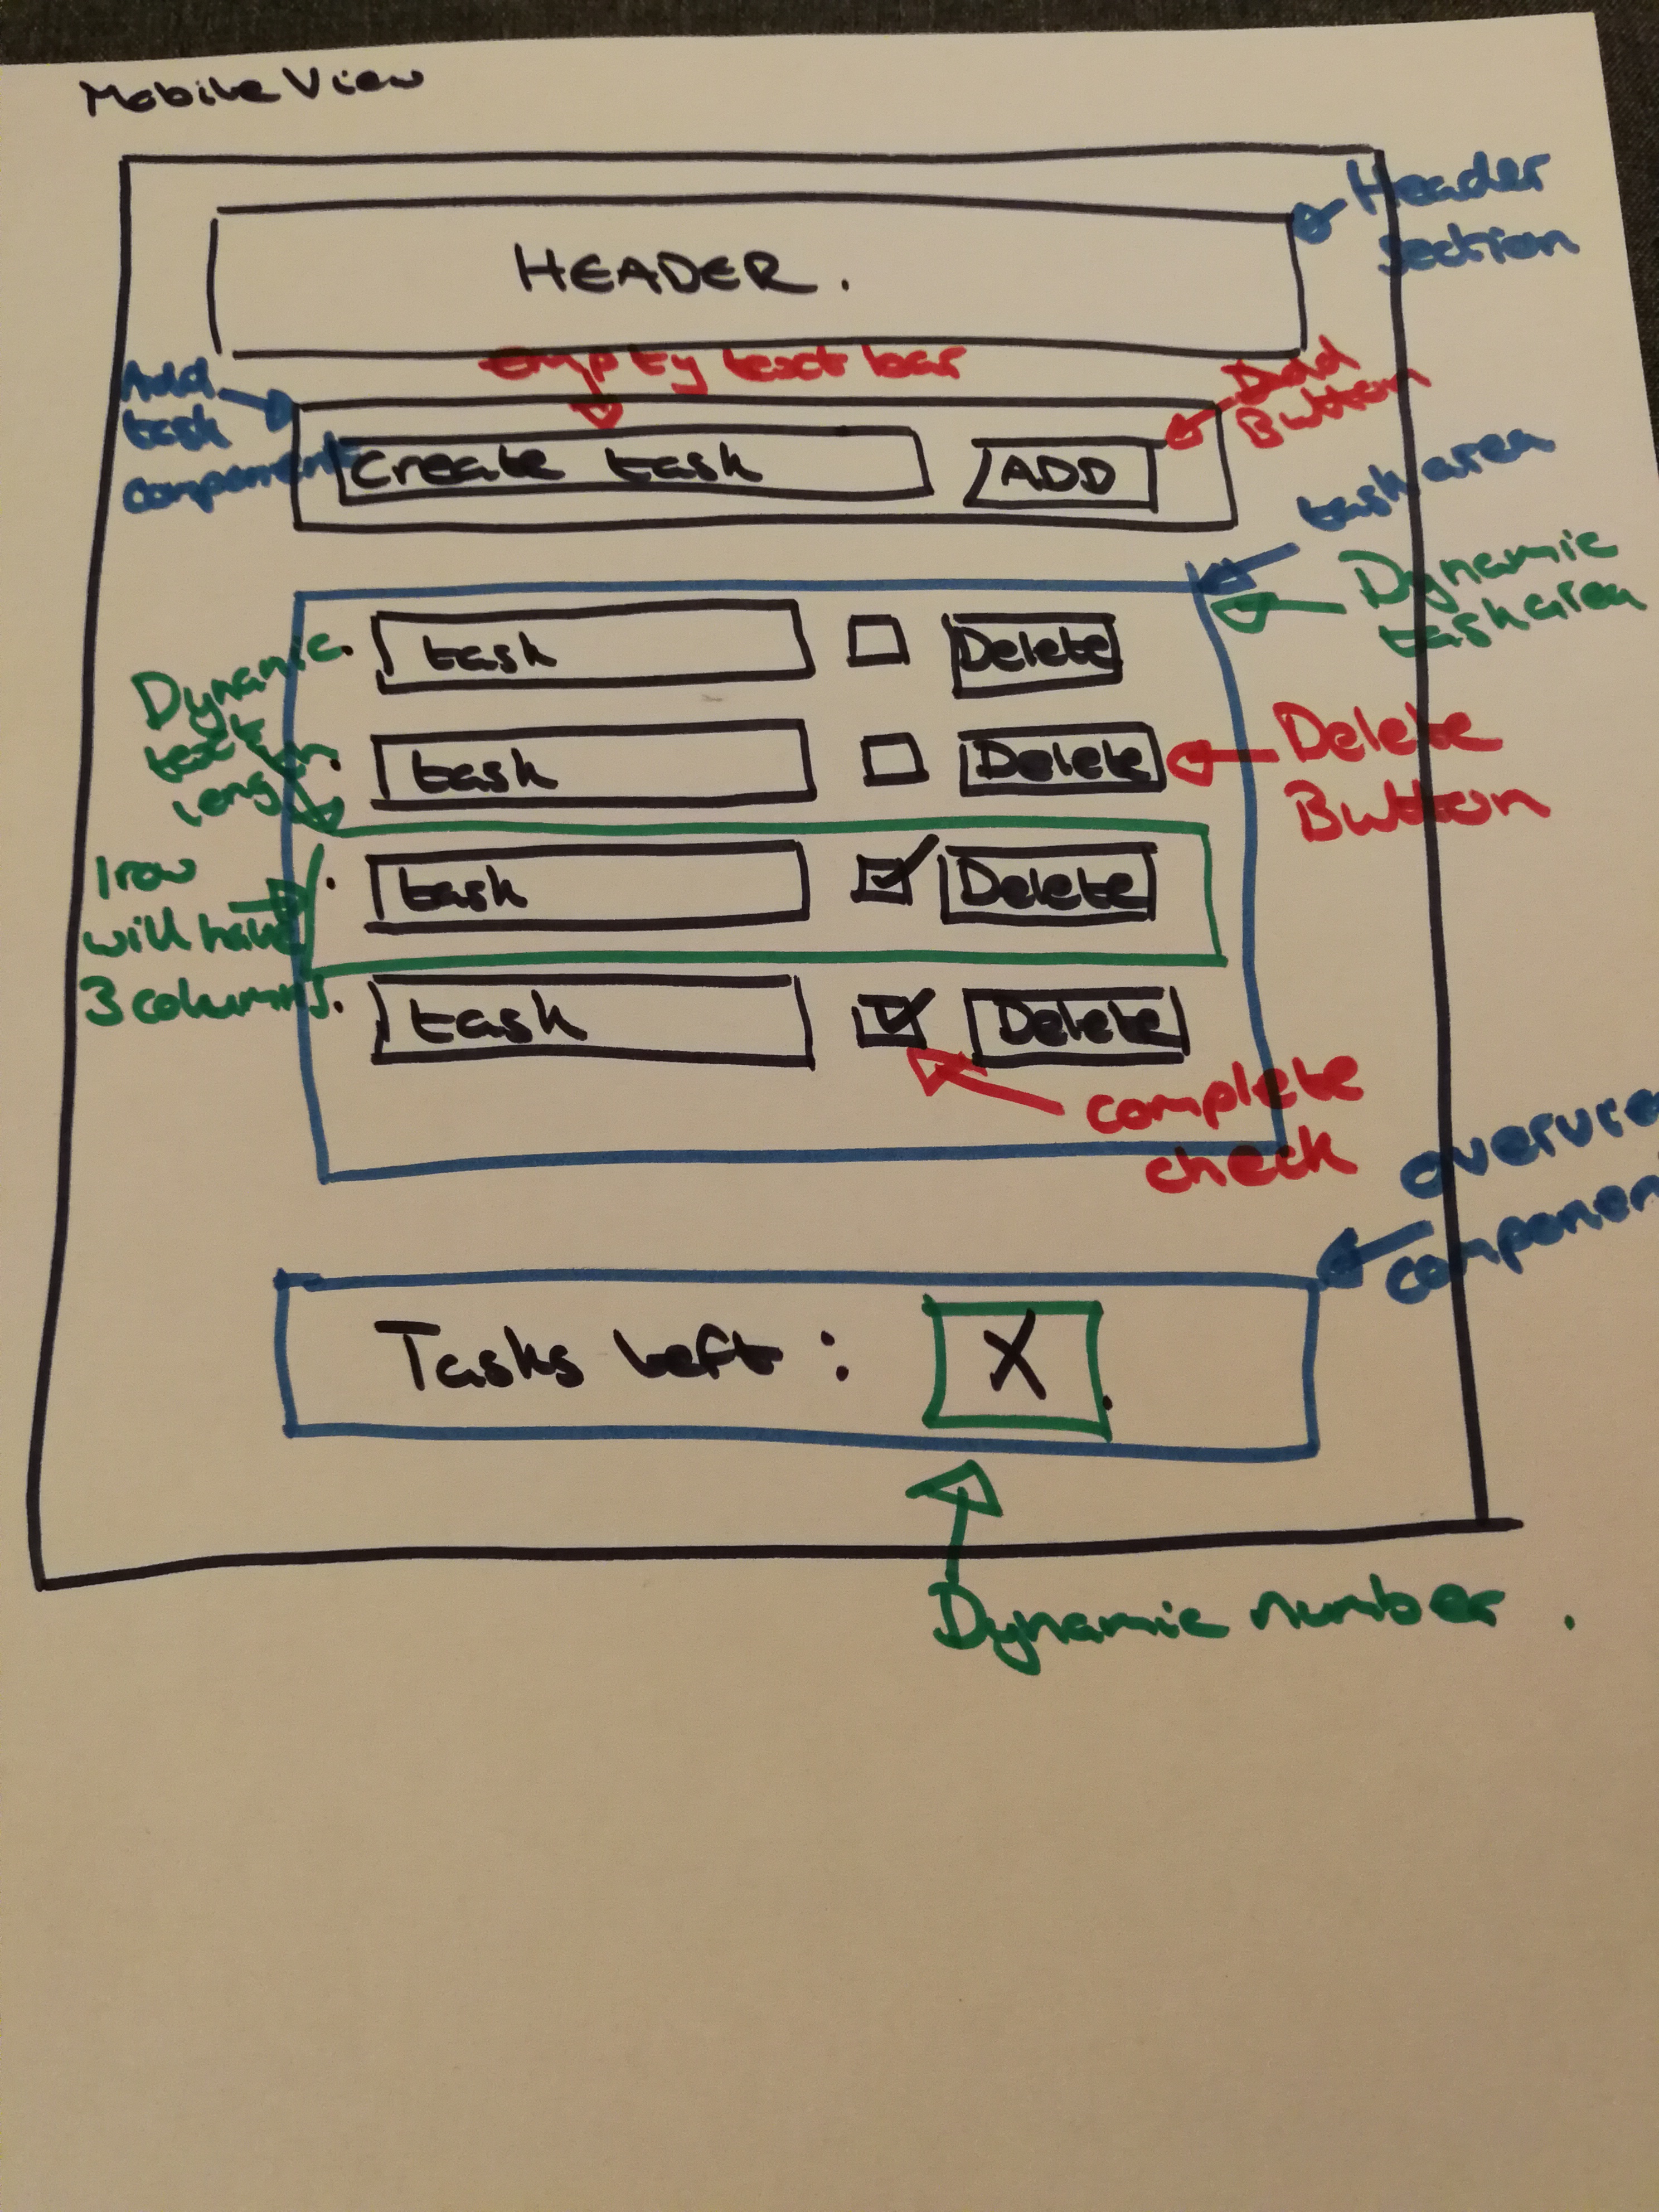 Mobile View
Header
section
HEADER.
Add
task
component
empty text bar
Add
Button
create task
ADD
task area
Dynamic
task area
Dynamic
text
length
task
Delete
task
Delete
Delete
Button
1 row
will have
3 columns.
task
Delete
task
Delete
complete
check
component
Tasks left :
X
Dynamic number.